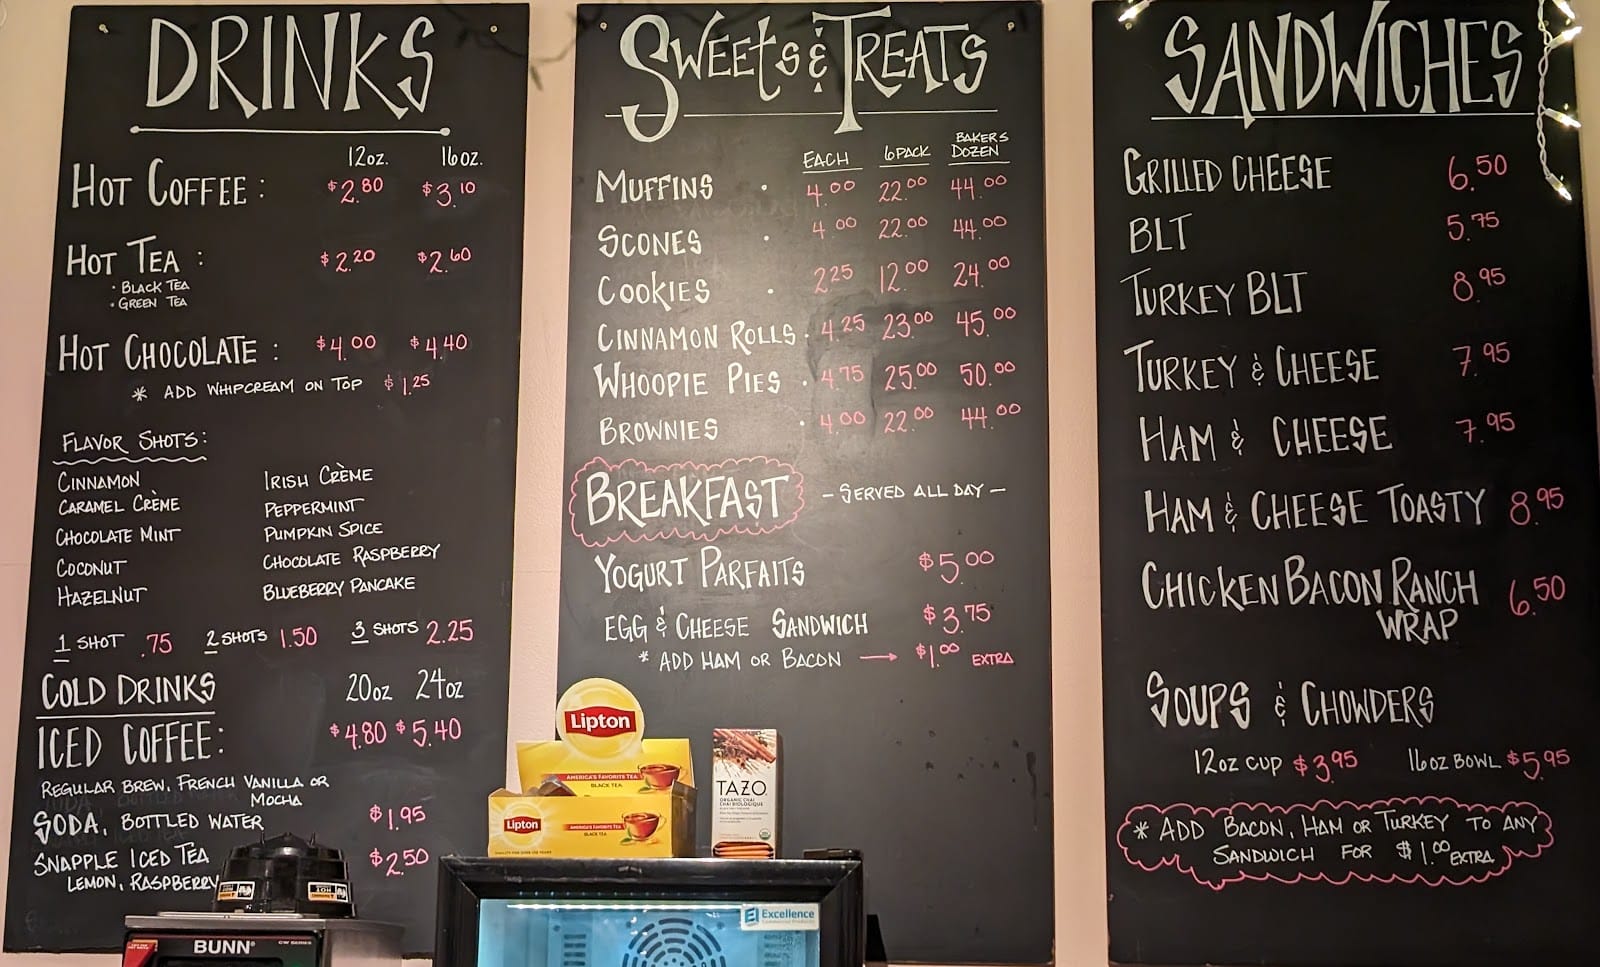 DRINKS
12oz. 16oz.
HOT COFFEE: $2.80 $3.10
HOT TEA: $2.20 $2.60
• BLACK TEA
• GREEN TEA
HOT CHOCOLATE: $4.00 $4.40
* ADD WHIPCREAM ON TOP $1.25
FLAVOR SHOTS:
CINNAMON IRISH CRÈME
CARAMEL CRÈME PEPPERMINT
CHOCOLATE MINT PUMPKIN SPICE
COCONUT CHOCOLATE RASPBERRY
HAZELNUT BLUEBERRY PANCAKE
1 SHOT .75 2 SHOTS 1.50 3 SHOTS 2.25
COLD DRINKS 20oz 24oz
ICED COFFEE: $4.80 $5.40
REGULAR BREW, FRENCH VANILLA OR
MOCHA
SODA, BOTTLED WATER $1.95
SNAPPLE ICED TEA $2.50
LEMON, RASPBERRY
SWEETS & TREATS
EACH 6 PACK BAKERS
DOZEN
MUFFINS • 4.00 22.00 44.00
SCONES • 4.00 22.00 44.00
COOKIES • 2.25 12.00 24.00
CINNAMON ROLLS • 4.25 23.00 45.00
WHOOPIE PIES • 4.75 25.00 50.00
BROWNIES • 4.00 22.00 44.00
BREAKFAST - SERVED ALL DAY -
YOGURT PARFAITS $5.00
EGG & CHEESE SANDWICH $3.75
* ADD HAM OR BACON → $1.00 EXTRA
SANDWICHES
GRILLED CHEESE 6.50
BLT 5.75
TURKEY BLT 8.95
TURKEY & CHEESE 7.95
HAM & CHEESE 7.95
HAM & CHEESE TOASTY 8.95
CHICKEN BACON RANCH 6.50
WRAP
SOUPS & CHOWDERS
12oz CUP $3.95 16oz BOWL $5.95
* ADD BACON, HAM OR TURKEY TO ANY
SANDWICH FOR $1.00 EXTRA
Lipton
AMERICA'S FAVORITE TEA
BLACK TEA
Lipton
AMERICA'S FAVORITE TEA
BLACK TEA
TAZO
ORGANIC CHAI
CHAI BIOLOGIQUE
Excellence
BUNN
CW SERIES